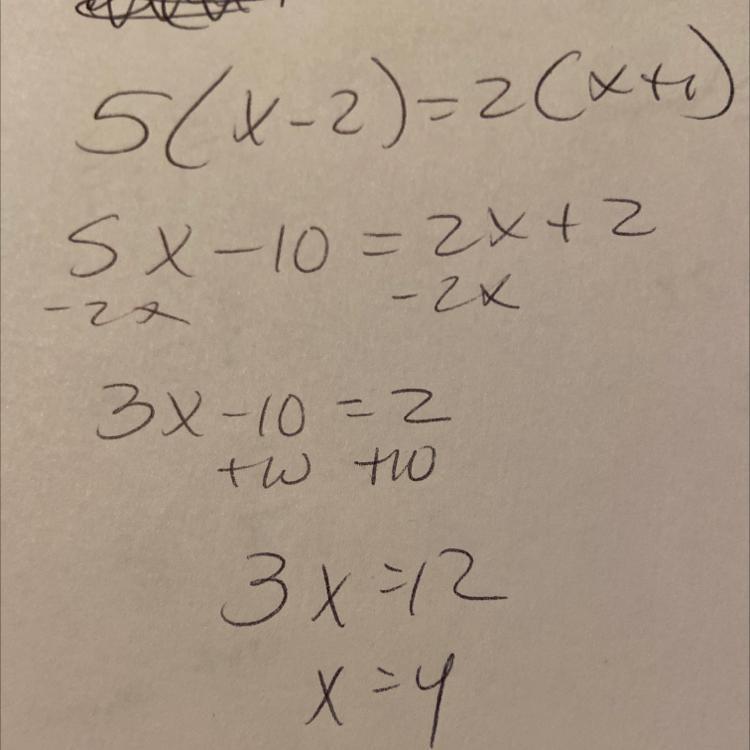 5(x-2)=2(x+1)
5x-10=2x+2
-2x -2x
3x-10=2
+10 +10
3x=12
x=4